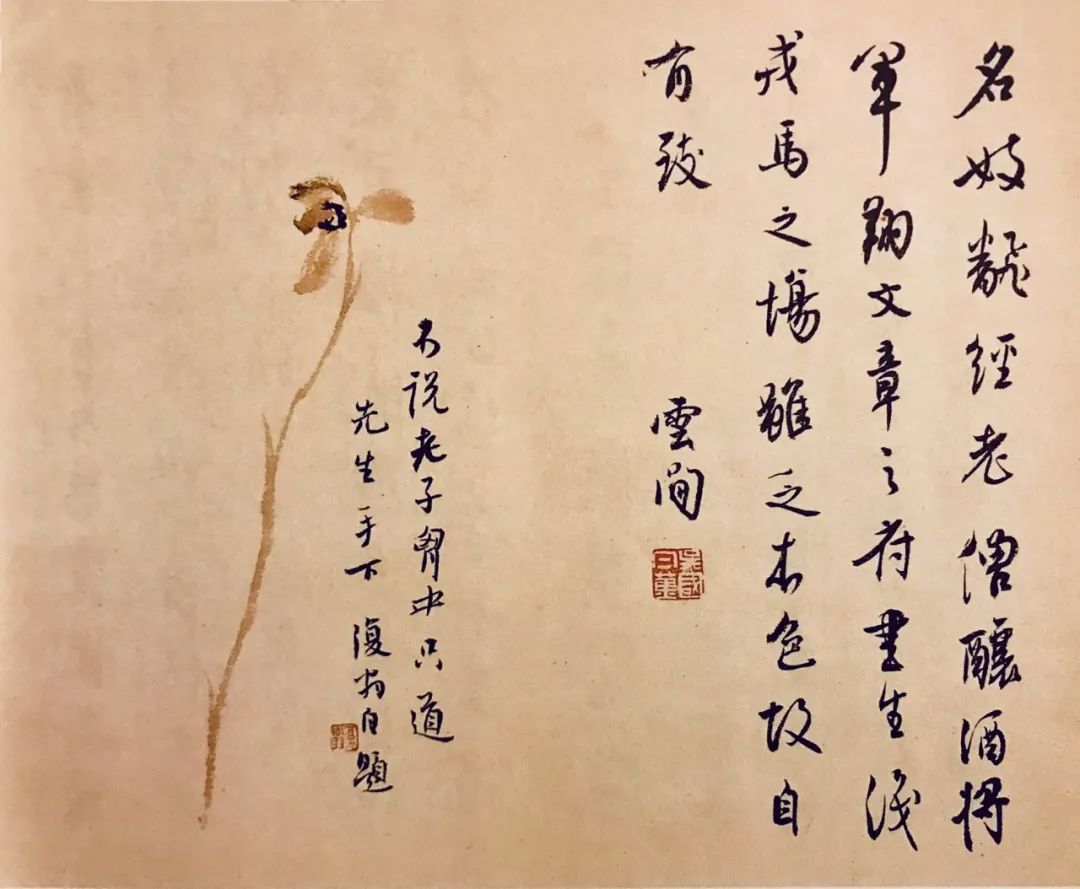 名妓飜經老僧釀酒將
軍翔文章之府書生踐
戎馬之場雖乏本色故自
有致 雲間
不说老子胷中只道
先生手下 復翁自題